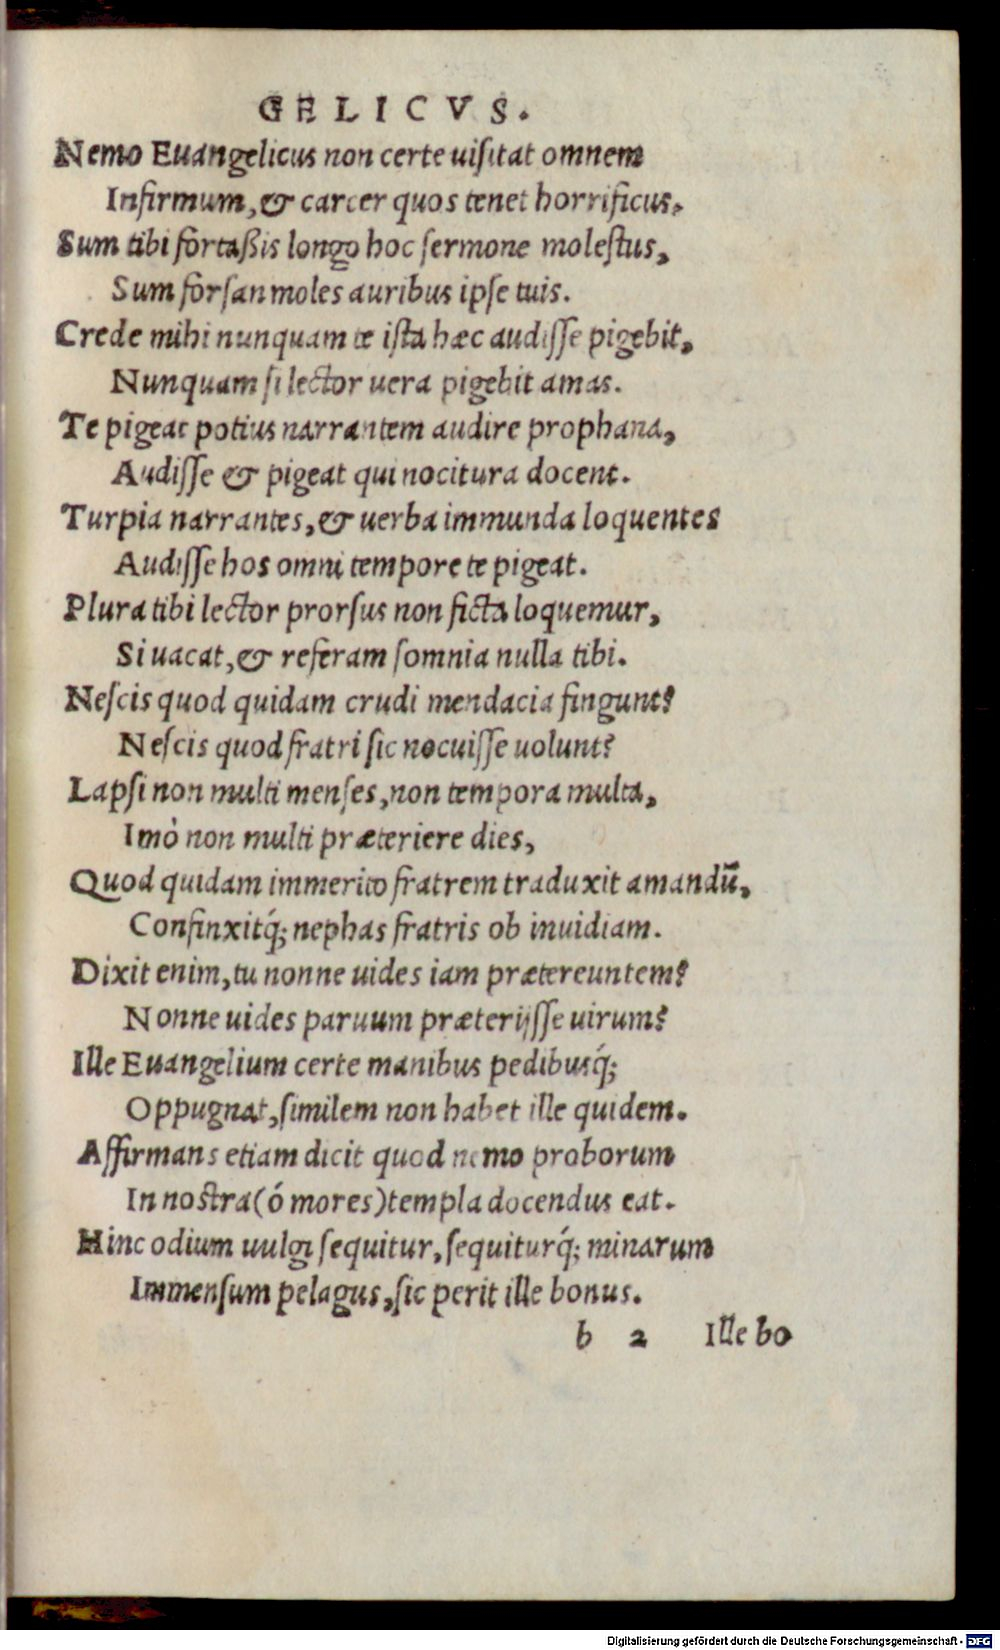 GELICVS.
Nemo Euangelicus non certe uiſitat omnem
Infirmum, & carcer quos tenet horrificus.
Sum tibi fortaßis longo hoc ſermone moleſtus,
Sum forſan moles auribus ipſe tuis.
Crede mihi nunquam te iſta hæc audiſſe pigebit,
Nunquam ſi lector uera pigebit amas.
Te pigeat potius narrantem audire prophana,
Audiſſe & pigeat qui nocitura docent.
Turpia narrantes, & uerba immunda loquentes
Audiſſe hos omni tempore te pigeat.
Plura tibi lector prorſus non ficta loquemur,
Si uacat, & referam ſomnia nulla tibi.
Neſcis quod quidam crudi mendacia fingunt?
Neſcis quod fratri ſic nocuiſſe uolunt?
Lapſi non multi menſes, non tempora multa,
Imò non multi præteriere dies,
Quod quidam immerito fratrem traduxit amandũ,
Confinxitq́; nephas fratris ob inuidiam.
Dixit enim, tu nonne uides iam prætereuntem?
Nonne uides paruum præterijſſe uirum?
Ille Euangelium certe manibus pedibusq́;
Oppugnat, ſimilem non habet ille quidem.
Affirmans etiam dicit quod nemo proborum
In noſtra (ó mores) templa docendus eat.
Hinc odium uulgi ſequitur, ſequiturq́; minarum
Immenſum pelagus, ſic perit ille bonus.
b 2 Ille bo
Digitalisierung gefördert durch die Deutsche Forschungsgemeinschaft - DFG